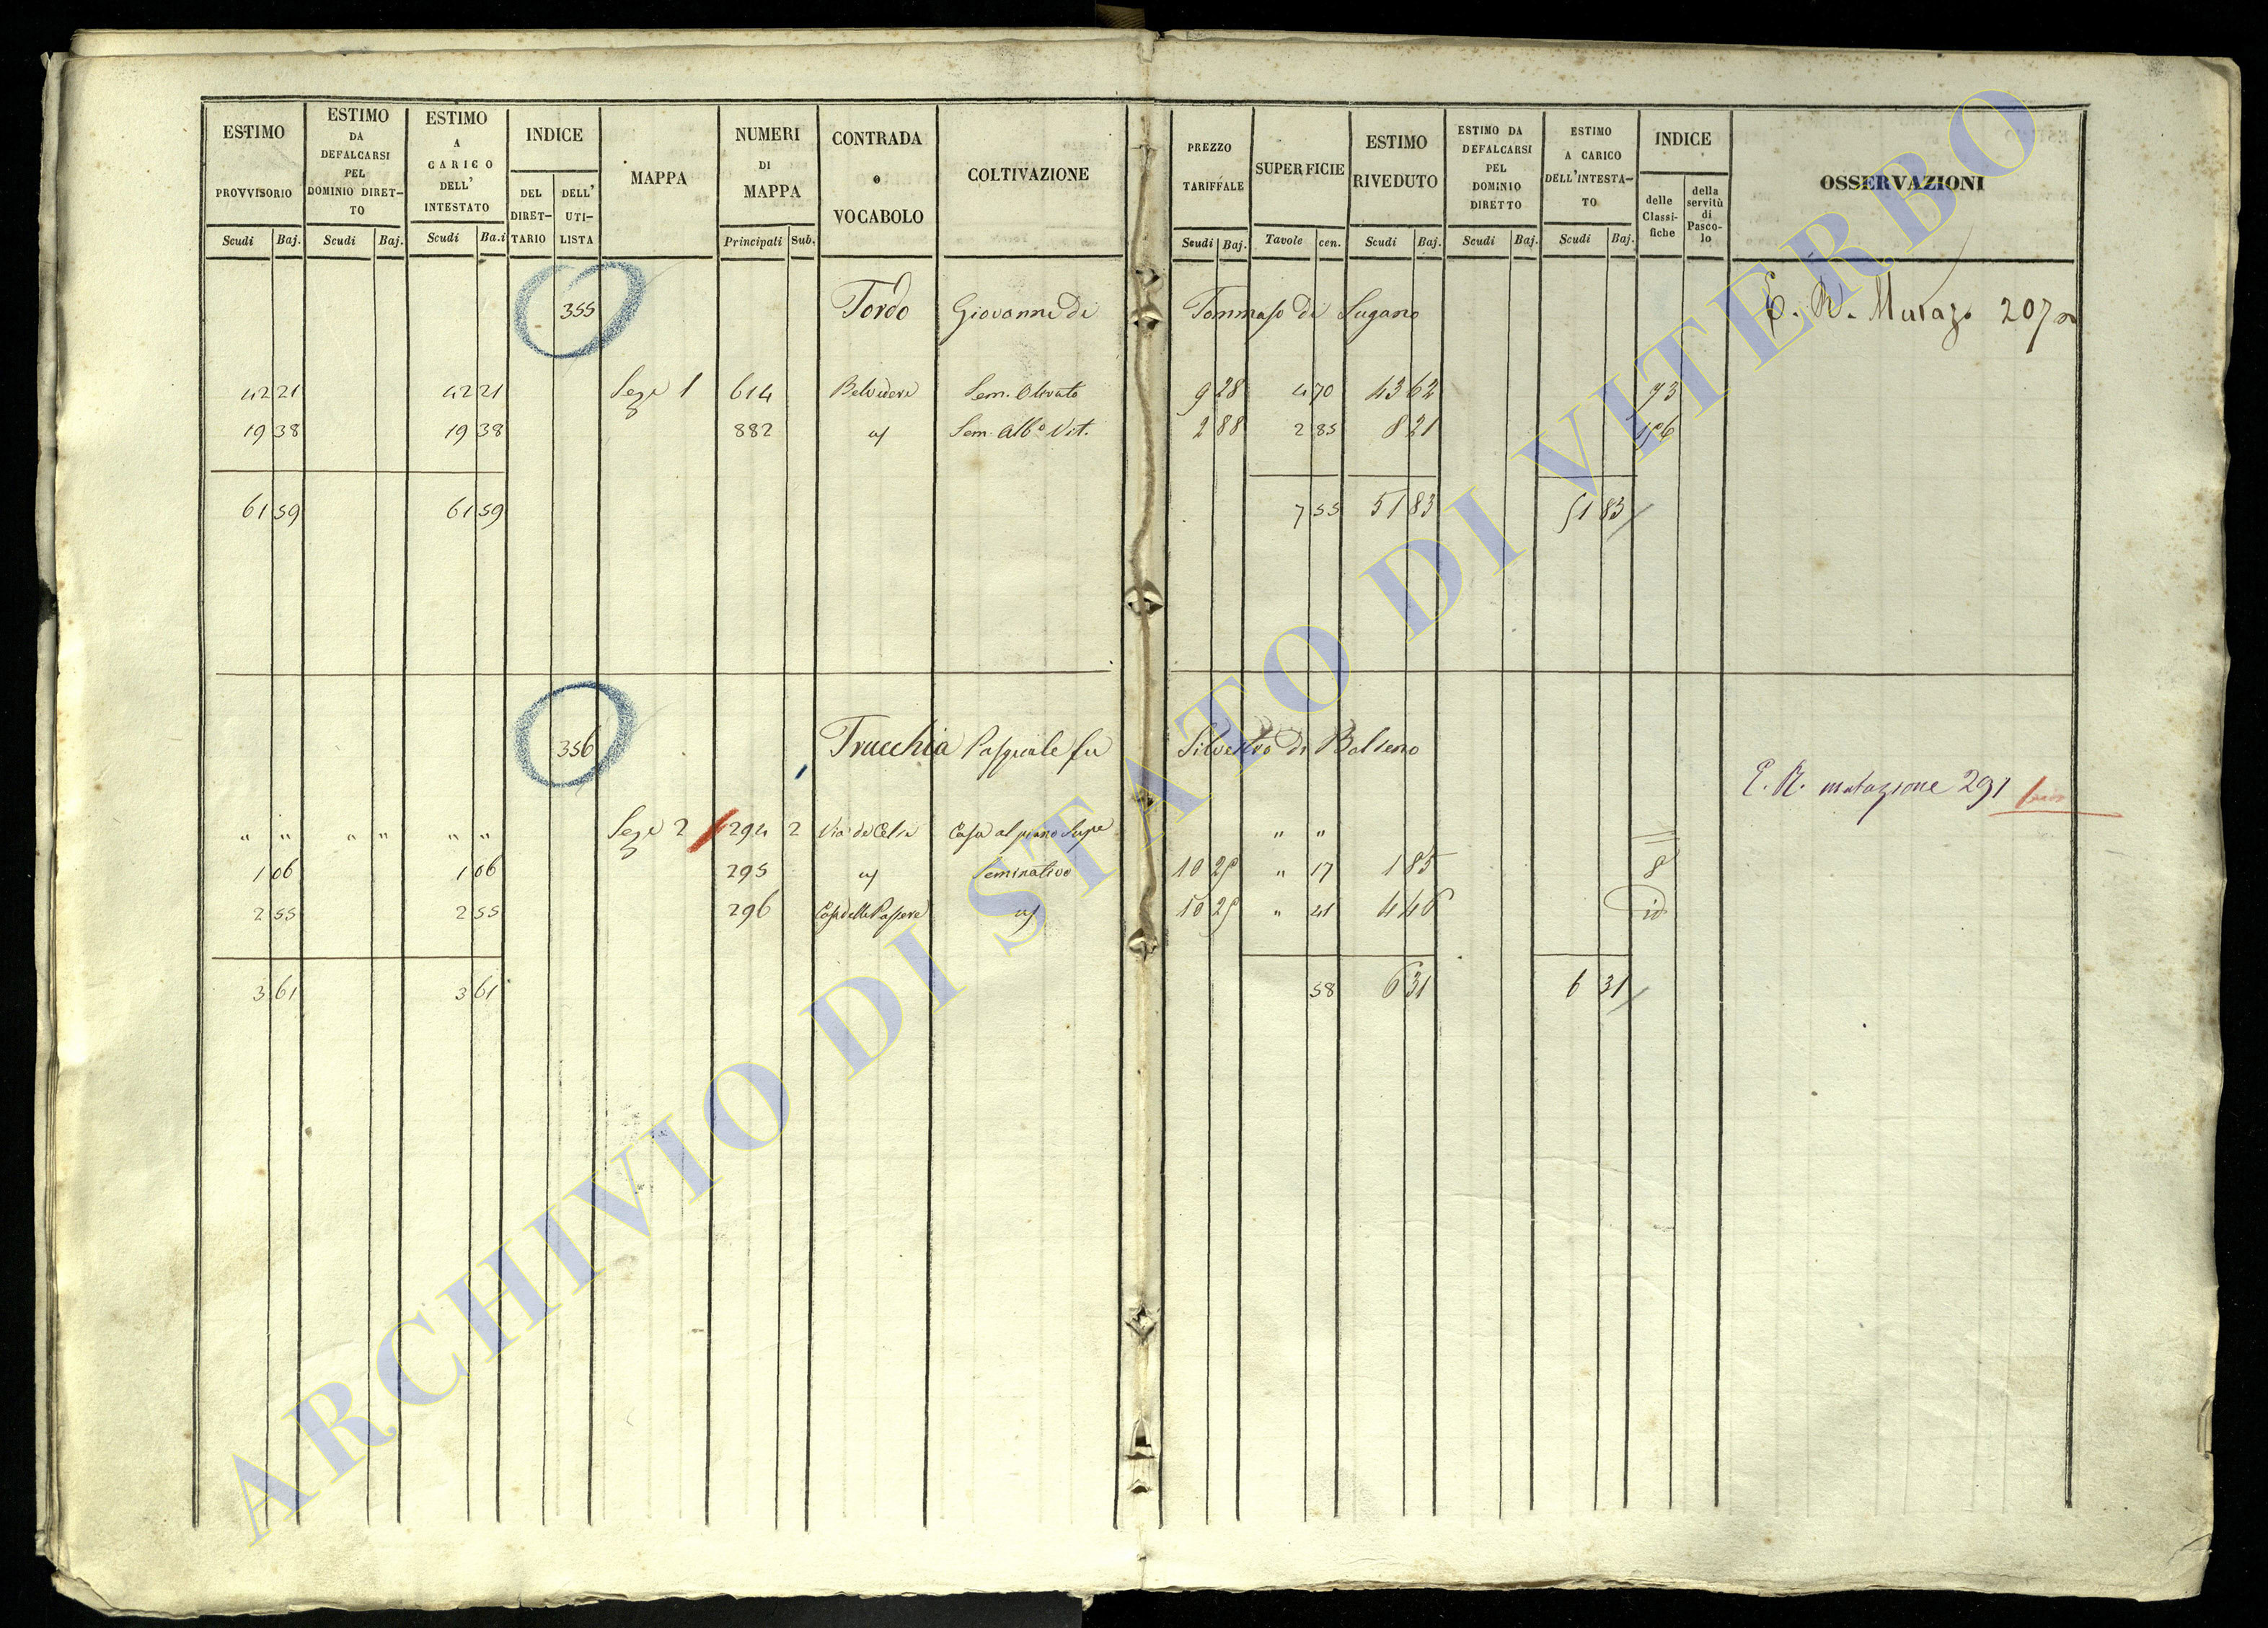 ESTIMO PROVVISORIO Scudi Baj.
ESTIMO DA DEFALCARSI PEL DOMINIO DIRET-TO Scudi Baj.
ESTIMO A CARICO DELL' INTESTATO Scudi Ba.i
INDICE DEL DIRET-TARIO DELL' UTI-LISTA
MAPPA
NUMERI DI MAPPA Principali Sub.
CONTRADA o VOCABOLO
COLTIVAZIONE
PREZZO TARIFFALE Scudi Baj.
SUPERFICIE Tavole cen.
ESTIMO RIVEDUTO Scudi Baj.
ESTIMO DA DEFALCARSI PEL DOMINIO DIRETTO Scudi Baj.
ESTIMO A CARICO DELL'INTESTA-TO Scudi Baj.
INDICE delle Classi-fiche della servitù di Pasco-lo
OSSERVAZIONI
355 Tordo Giovanni di Tommaso di Sugano E. R. 207
42 21 42 21 Sez. 1 614 Belvedere Sem. Olivato 9 28 4 70 43 62 73
19 38 19 38 882 Sem. Alb.o Vit. 2 88 2 85 8 21
61 59 61 59 7 55 51 83 51 83
356 Trucchia Pasquale fu Silvestro di Bolseno
E. R. mutazione 291
" " " " " " Sez. 2 294 2 Via de Casa al piano Supe " "
1 06 1 06 295 Seminativo " 17 1 85 8
2 55 2 55 296 " 41 4 46 id
3 61 3 61 58 6 31 6 31
ARCHIVIO DI STATO DI VITERBO